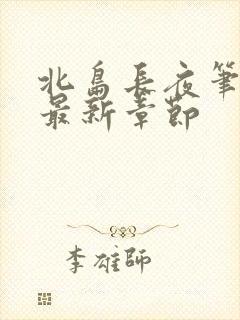 北島長夜筆
最新章節
李雄師